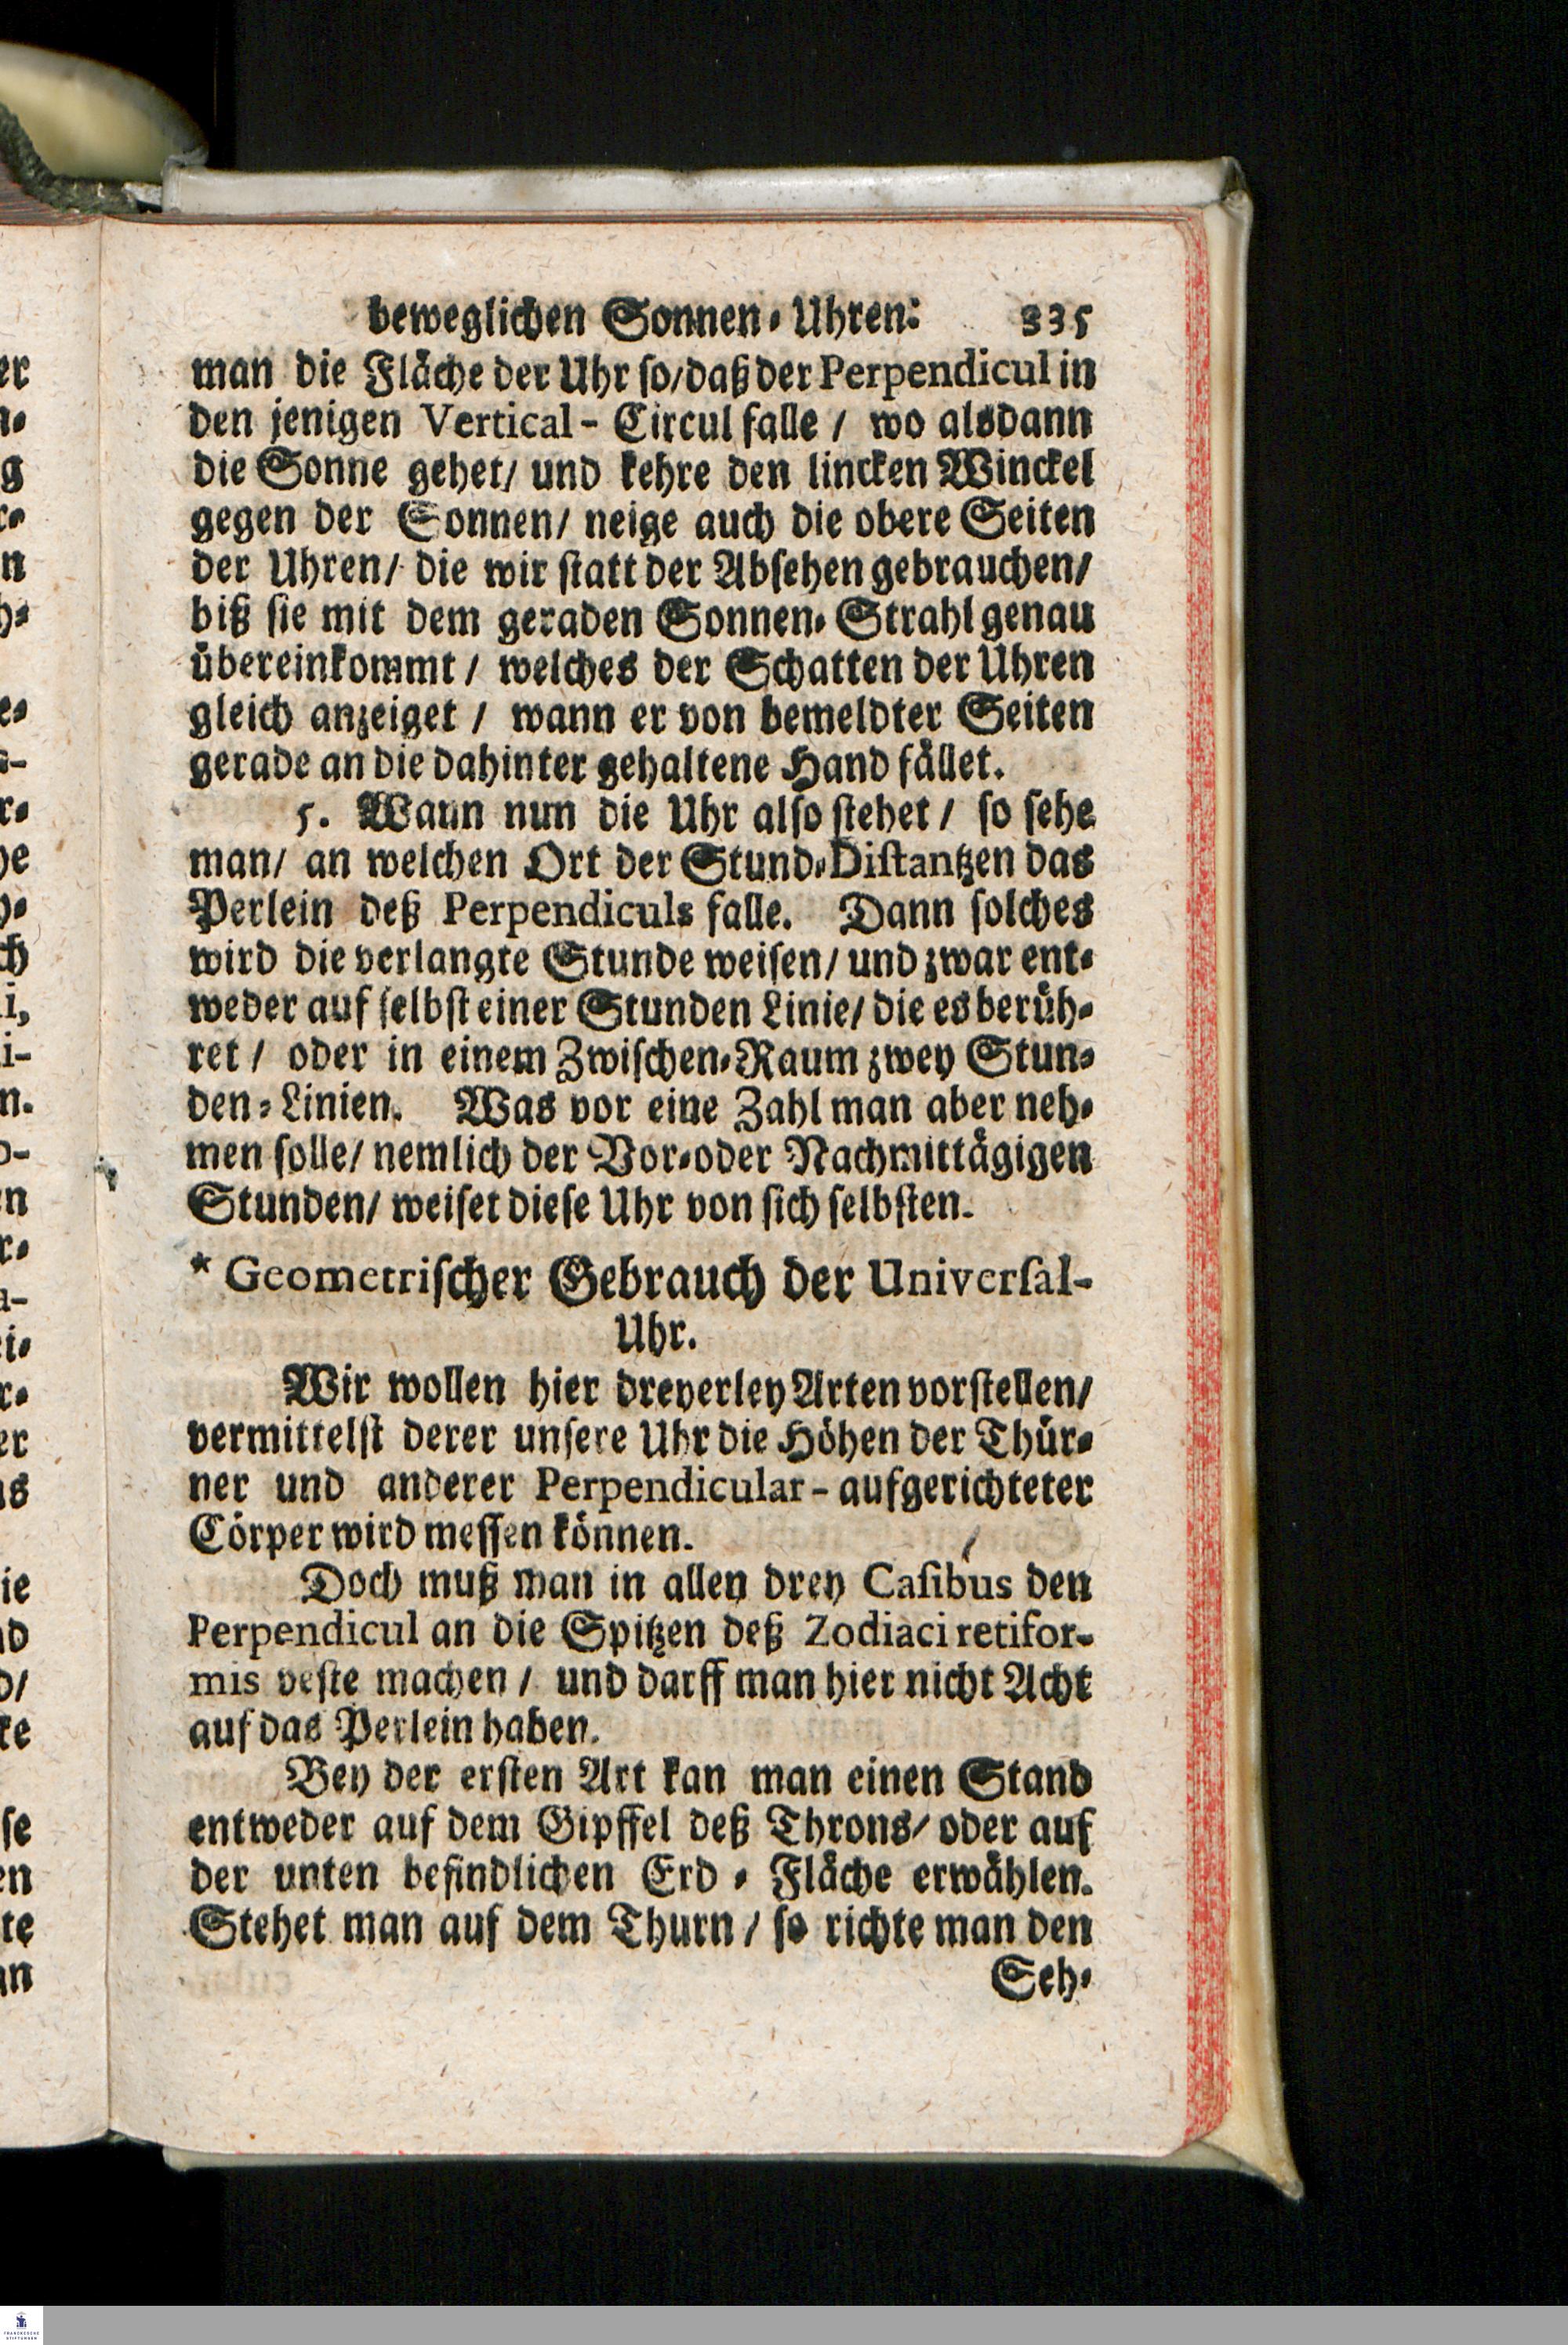 beweglichen Sonnen-Uhren: 335
man die Fläche der Uhr so/daß der Perpendicul in
den jenigen Vertical-Circul falle / wo alsdann
die Sonne gehet/ und kehre den lincken Winckel
gegen der Sonnen/ neige auch die obere Seiten
der Uhren/ die wir statt der Absehen gebrauchen/
biß sie mit dem geraden Sonnen-Strahl genau
übereinkommt / welches der Schatten der Uhren
gleich anzeiget / wann er von bemeldter Seiten
gerade an die dahinter gehaltene Hand fället.
5. Wann nun die Uhr also stehet / so sehe
man/ an welchen Ort der Stund-Distantzen das
Perlein deß Perpendiculs falle. Dann solches
wird die verlangte Stunde weisen/ und zwar ent-
weder auf selbst einer Stunden Linie/ die es berüh-
ret / oder in einem Zwischen-Raum zwey Stun-
den-Linien. Was vor eine Zahl man aber neh-
men solle/ nemlich der Vor-oder Nachmittägigen
Stunden/ weiset diese Uhr von sich selbsten.
* Geometrischer Gebrauch der Universal-
Uhr.
Wir wollen hier dreyerley Arten vorstellen/
vermittelst derer unsere Uhr die Höhen der Thür-
ner und anderer Perpendicular-aufgerichteter
Cörper wird messen können.
Doch muß man in allen drey Casibus den
Perpendicul an die Spitzen deß Zodiaci retifor-
mis veste machen / und darff man hier nicht Acht
auf das Perlein haben.
Bey der ersten Art kan man einen Stand
entweder auf dem Gipffel deß Throns/ oder auf
der unten befindlichen Erd-Fläche erwählen.
Stehet man auf dem Thurn / so richte man den
Seh-
FRANCKESCHE
STIFTUNGEN